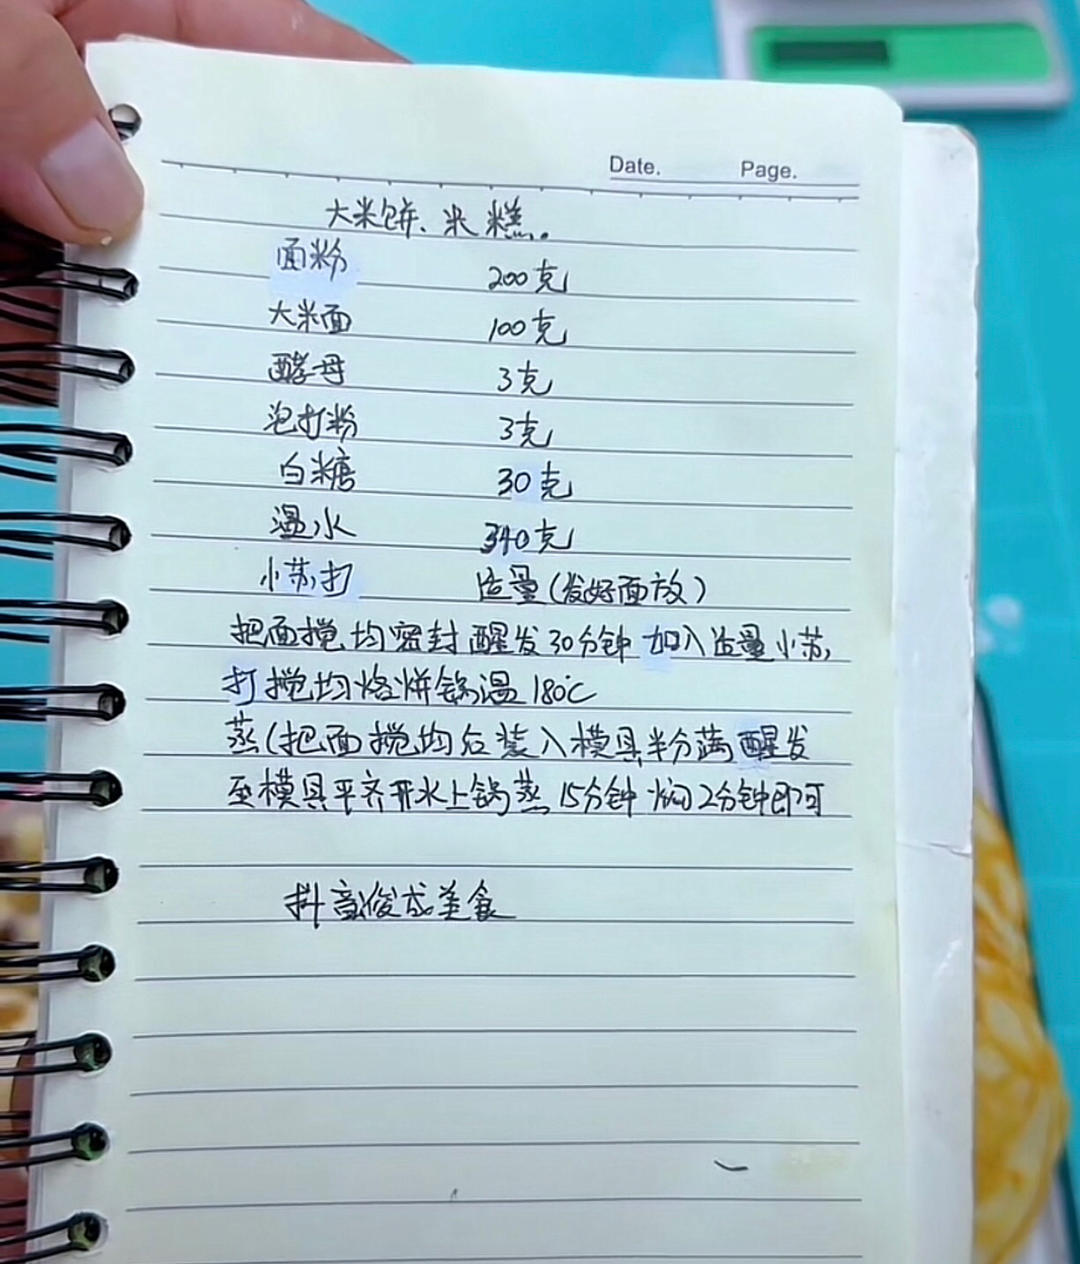 Date. Page.
大米饼、米糕。
面粉 200克
大米面 100克
酵母 3克
泡打粉 3克
白糖 30克
温水 340克
小苏打 适量(发好面放)
把面搅均密封醒发30分钟加入适量小苏,
打搅均烙饼锅温180℃
蒸(把面搅均后装入模具半分满醒发
至模具平齐开水上锅蒸15分钟焖2分钟即可
抖音俊成美食